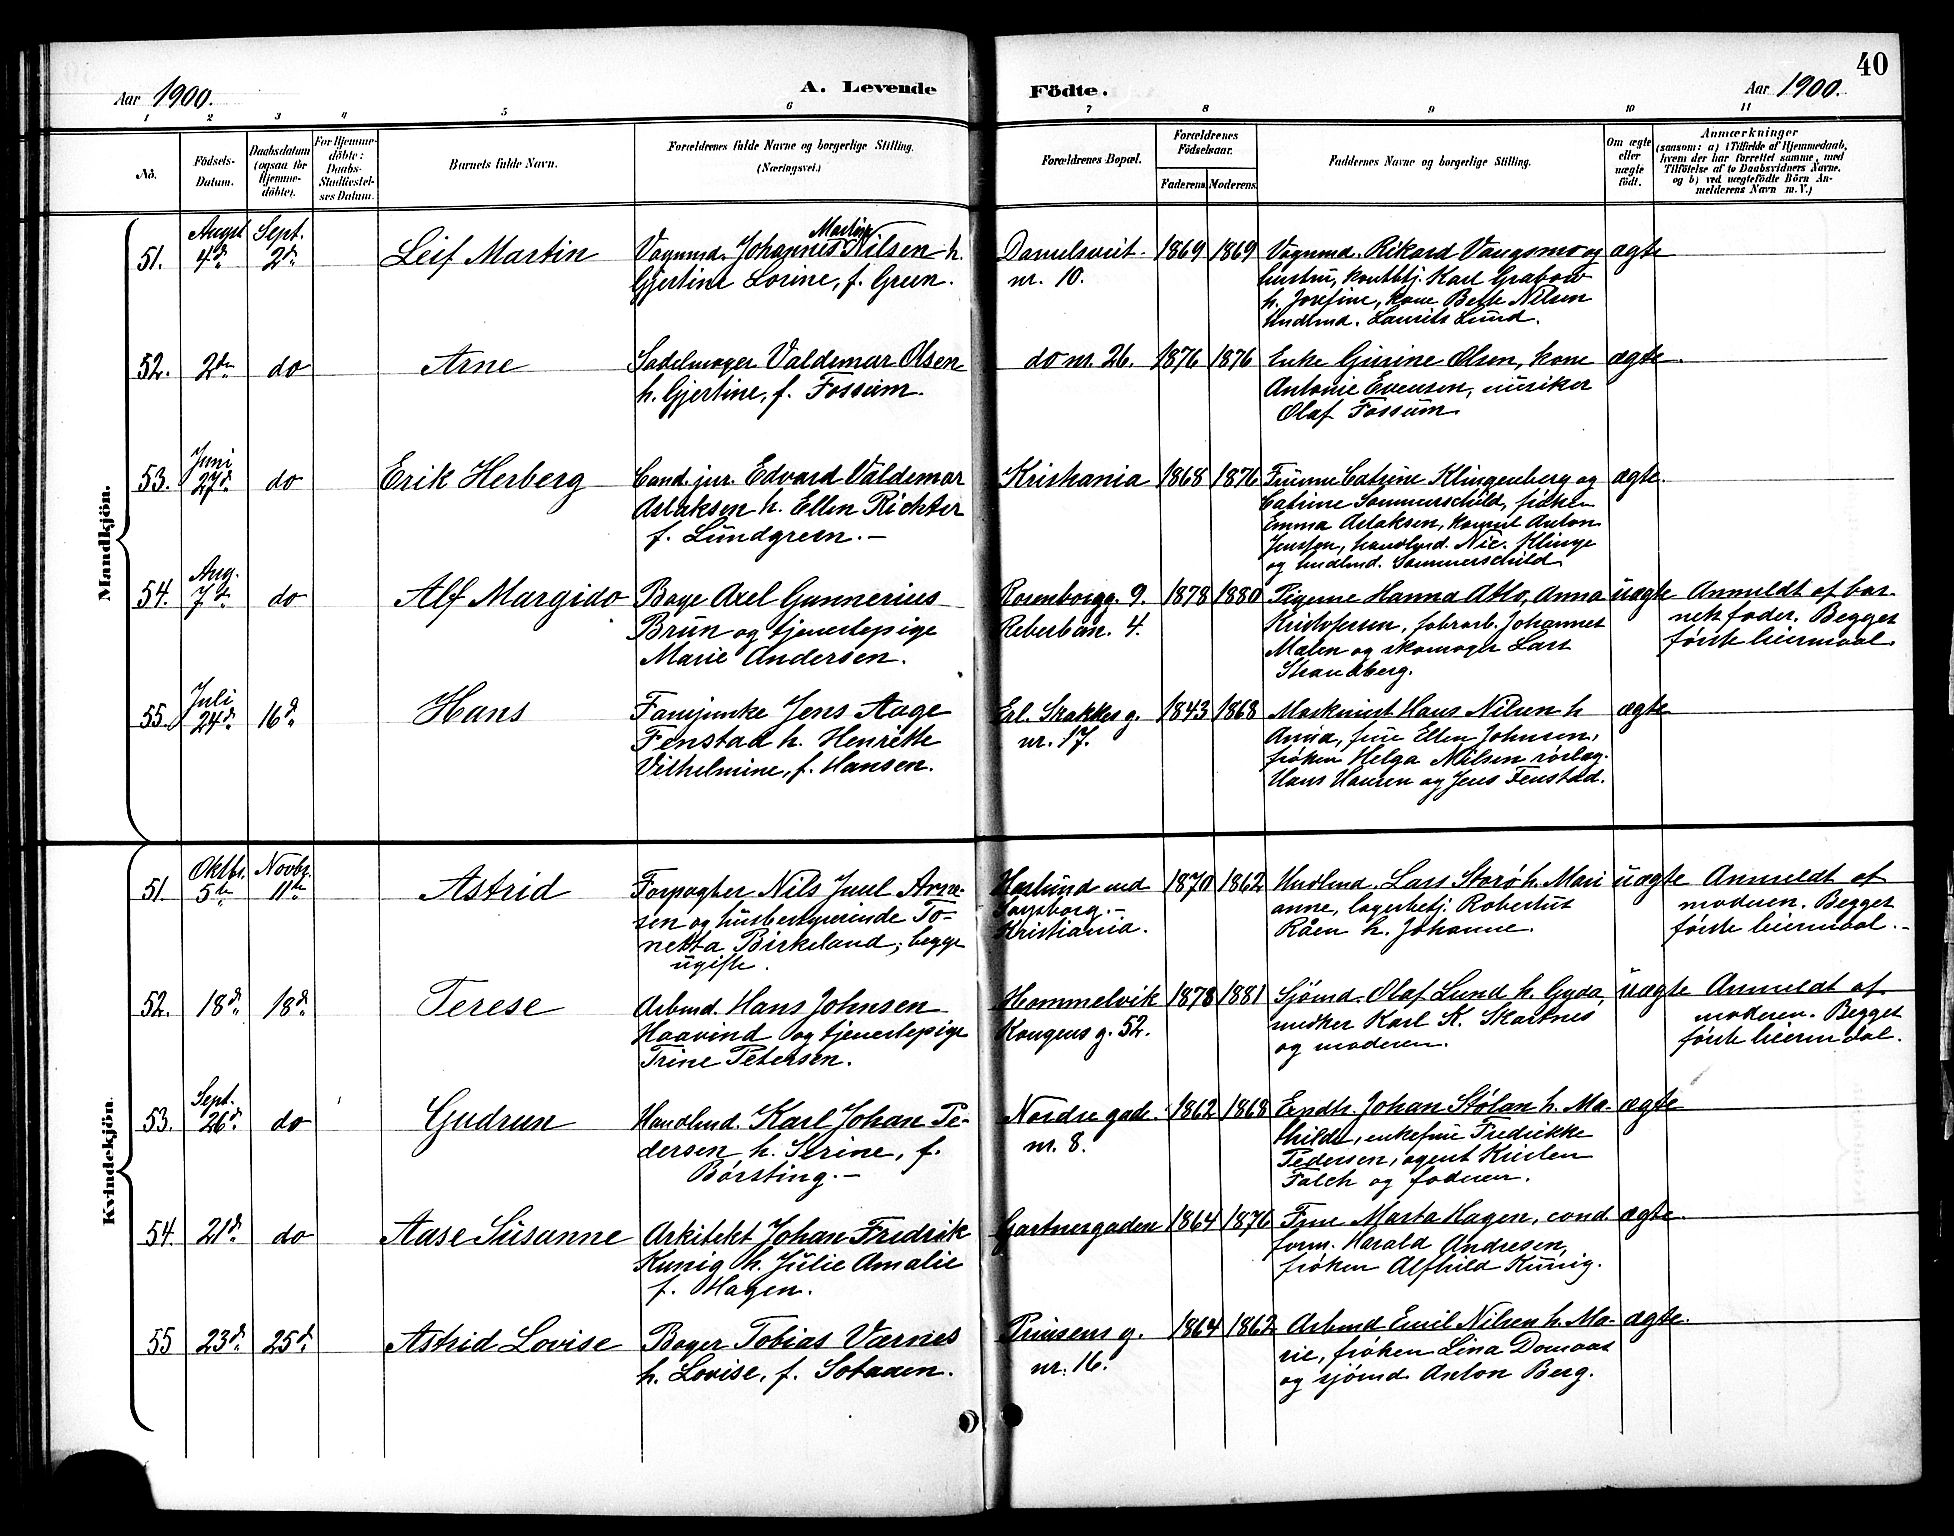 Aar 1900.
A. Levende
Födte.
Aar 1900.
40
1 2 3 4 5 6 7 8 9 10 11
No.
Födsels-
Datum.
Daabsdatum
(ogsaa for
Hjemme-
döbte).
For Hjemme-
döbte:
Daabs-
Stadfæstel-
ses Datum.
Barnets fulde Navn.
Forældrenes fulde Navne og borgerlige Stilling.
(Næringsvei.)
Forældrenes Bopæl.
Forældrenes
Födselsaar.
Faderens. Moderens.
Faddernes Navne og borgerlige Stilling.
Om ægte
eller
uægte
födt.
Anmærkninger
(saasom: a) i Tilfælde af Hjemmedaab,
hvem der har forrettet samme, med
Tilföielse af to Daabsvidners Navne,
og b) ved uægtefödte Börn An-
melderens Navn m. V.)
Mandkjön.
51. Augst 4de Sept. 2d. Leif Martin
Vognmd. Johannes Martin Nilsen h.
Gjertine Lorine, f. Green.
Danielsveit.
nr. 10.
1869 1869
Vognmd. Rikard Vangsmo og
hustru, Karl Grabow
h. Josefine, kone Bette Nilsen
Hndlmd. Laurits Lund.
ægte
52. 2den do Arne
Sadelmager Valdemar Olsen
h. Gjertine, f. Fossum.
do nr. 26. 1876 1876
Enke Gurine Olsen, kone
Antonie Evensen, musiker
Olaf Fossum.
ægte.
53. Juni 27d. do Erik Herberg
Cand. jur. Edvard Valdemar
Aslaksen h. Ellen Richter
f. Lundgreen.-
Kristiania 1868 1876
Fruerne Catrine Klingenberg og
Catrine Sommerschild, frøken
Emma Aslaksen, Anton
Jenssen, handlmd. Nic. Klinge
og hndlmd. Sommerschild
ægte.
54. Aug. 7de do Alf Margido
Bager Axel Gunnerius
Brun og tjenestepige
Marie Andersen.
Rosenborgg. 9.
Reberban. 4.
1878 1880
Pigerne Hanna Atlo, Anna
Kristofersen, fabrarb. Johannes
Malen og skomager Lars
Strandberg.
uægte
Anmeldt af bar-
nets fader. Begges
første leiermaal.
55. Juli 24d. 16d. Hans
Fanejunke Jens Aage
Fenstad h. Henrette
Vilhelmine, f. Hansen.
Erl. Skakkes g.
nr. 17.
1843 1868
Maskinist Hans Nilsen h
Anna, frue Ellen Johnsen,
frøken Helga Nilsen
Hans Hansen og Jens Fenstad.
ægte
Kvindekjön.
51. Oktbr. 5te Novbr. 11te Astrid
Forpagter Nils Juul Arne-
sen og husbestyrerinde To-
netta Birkeland; begge
ugifte.
Haslund ved
Sarpsborg.-
Kristiania.
1870 1862
Hndlmd. Lars Storø h. Mari
anne, lagerbetj. Robertus
Råen h. Johanne.
uægte
Anmeldt af
moderen. Begges
første leiermaal.-
52. 18d. 18d. Terese
Arbmd. Hans Johnsen
Haavind og tjenestepige
Trine Petersen.
Hommelvik
Kongens g. 52.
1878 1881
Sjømd. Olaf Lund h. Gyda,
Karl K. Skartnes
og moderen.
uægte
Anmeldt af
moderen. Begges
første leiermaal.
53. Sept. 26d. do Gudrun
Handlmd. Karl Johan Pe-
dersen h. Serine, f.
Børsting.-
Nordre gade.
nr. 8.
1862 1868
Johan Stølan h. Ma-
thilde, enkefrue Fredrikke
Pedersen, agent Kristen
Falch og faderen.
ægte
54. 21d. do Aase Susanne
Arkitekt Johan Fredrik
Kunig h. Julie Amalie
f. Hagen.
Gartnergaden 1864 1876
Frue Marta Hagen, cand.
farm. Harald Andresen,
frøken Alfhild Kunig.
ægte.
55 23d. 25d. Astrid Lovise
Bager Tobias Værnes
h. Lovise, f. Sotaaen.
Prinsens g.
nr. 16.
1864 1862
Arbmd Emil Nilsen h. Ma-
rie, frøken Lina Domaas
og sjømd. Anton Berg.
ægte.